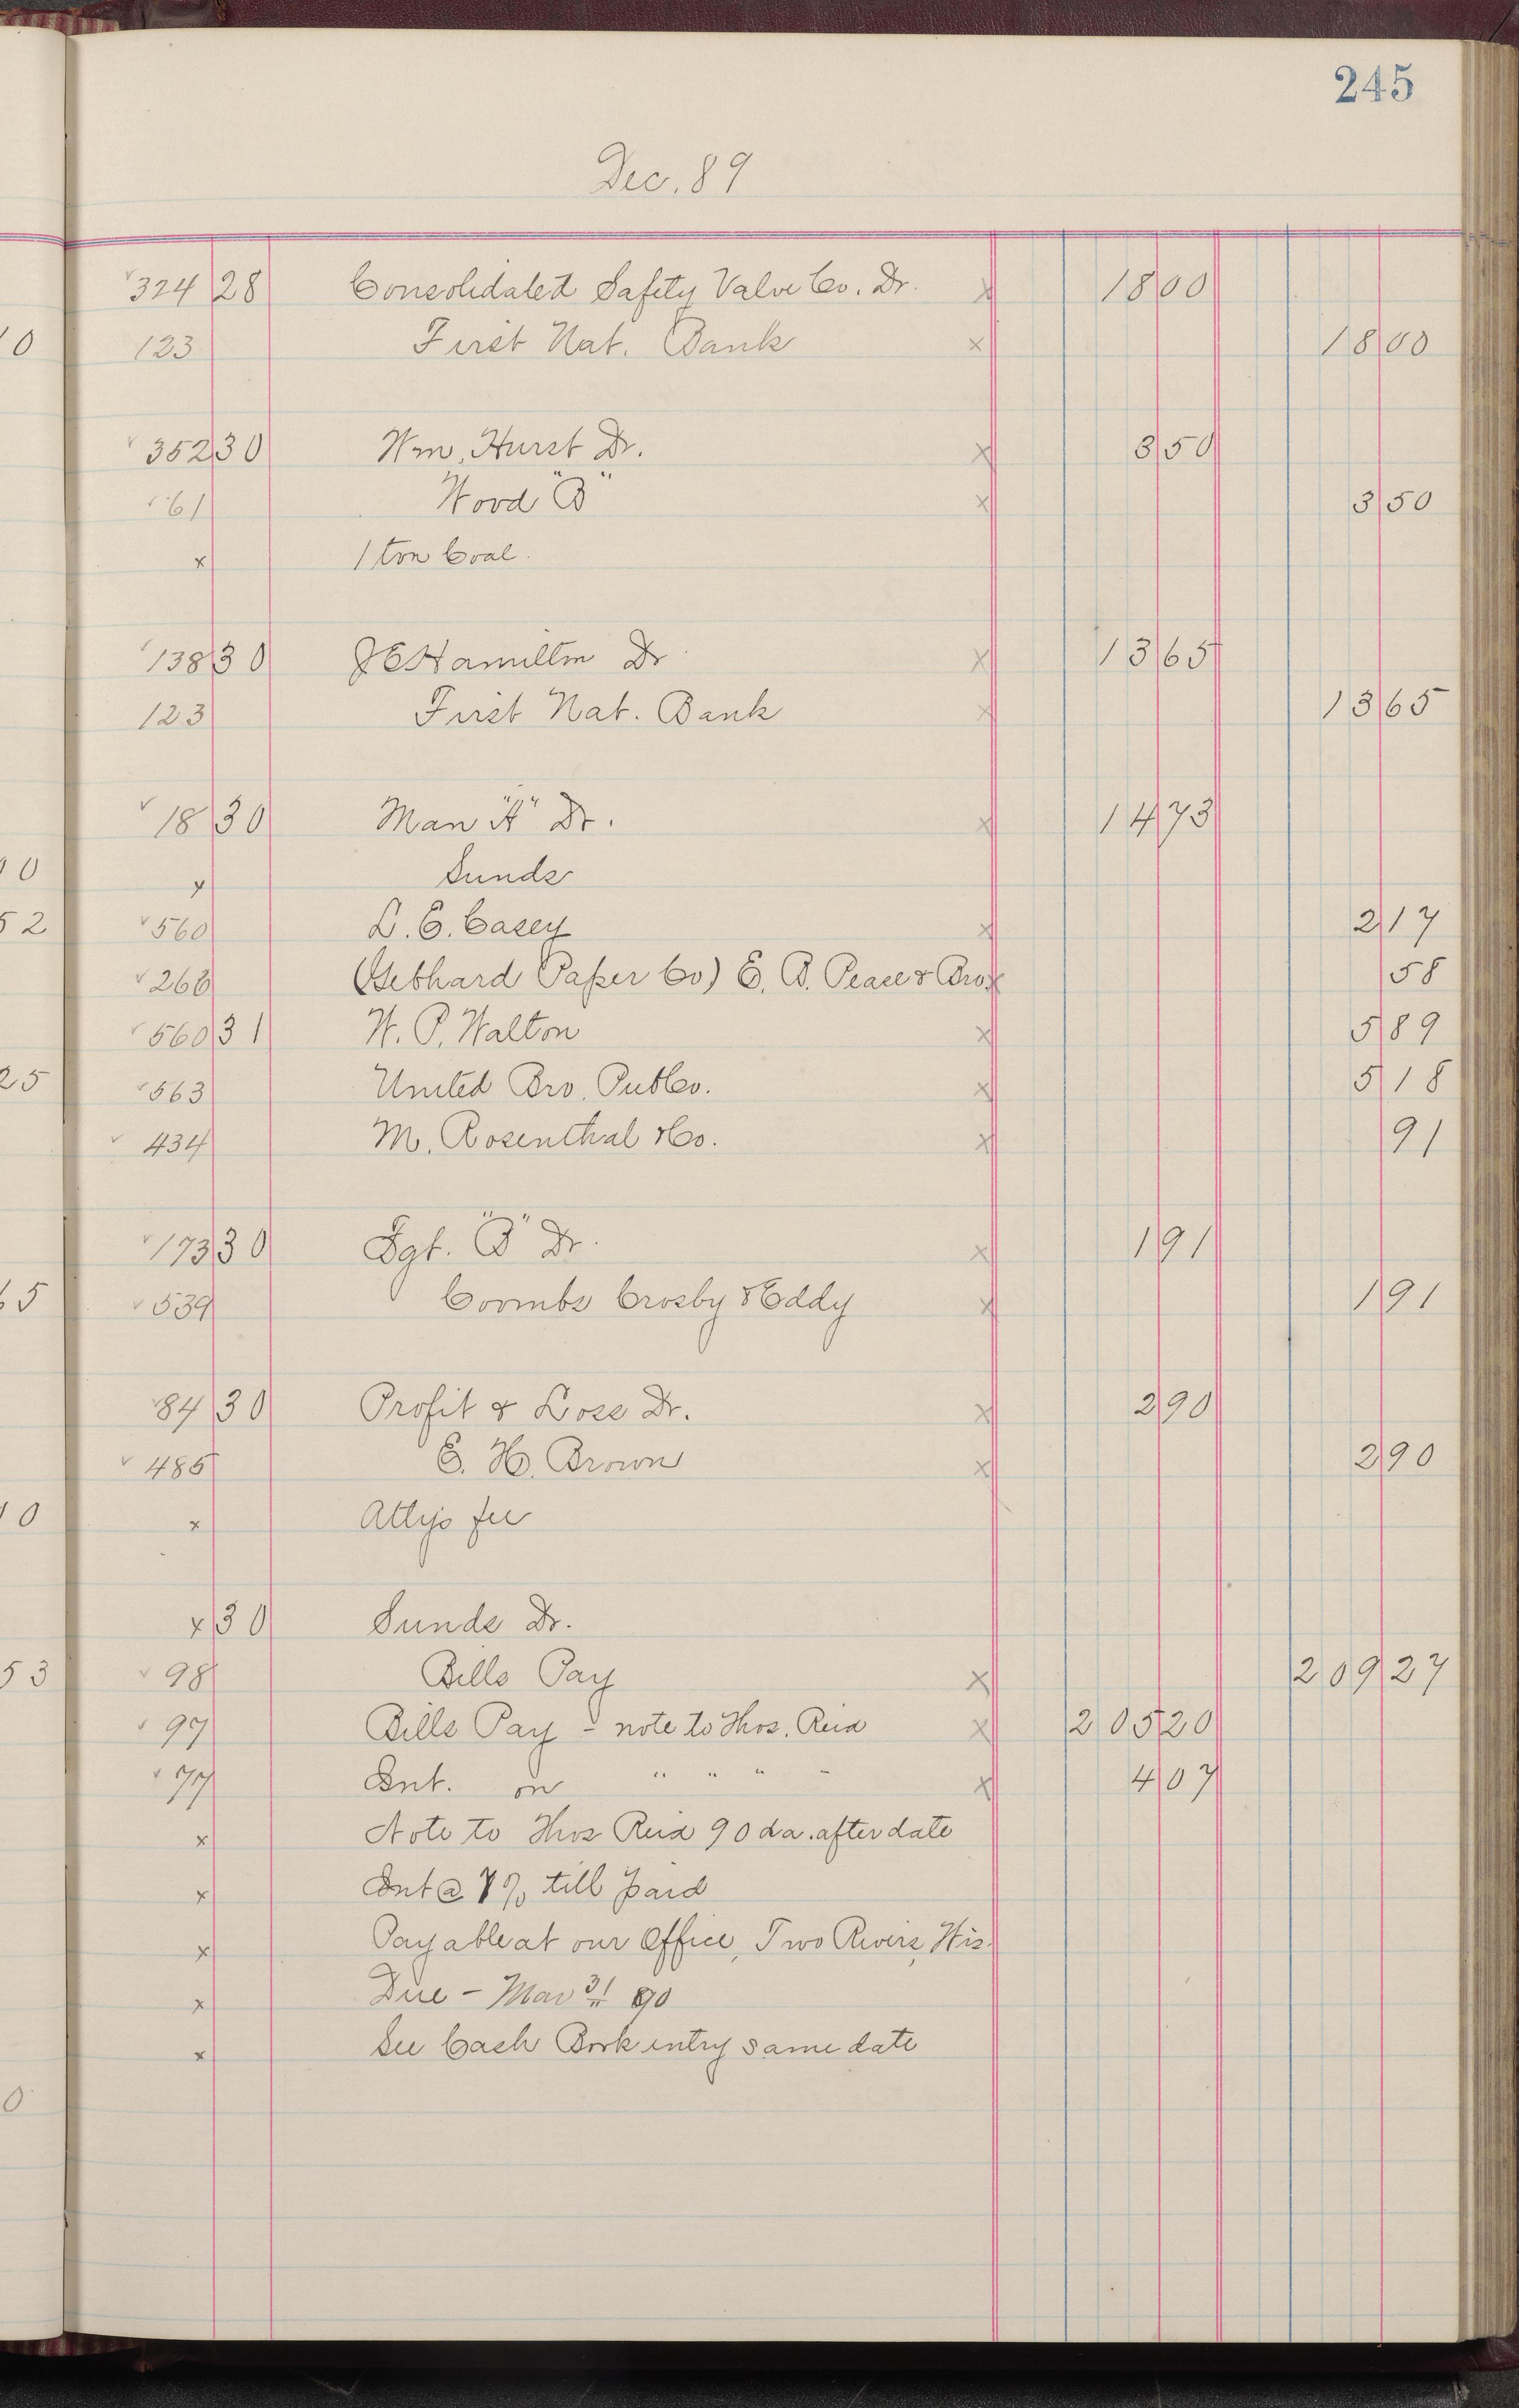 245
Dec. 89
324 28 Consolidated Safety Valve Co. Dr. x 18 00
10 123 First Nat. Bank x 18 00
352 30 Wm. Hurst Dr. x 3 50
61 Wood "B" x 3 50
x 1 ton Coal.
138 30 J E Hamilton Dr x 13 65
123 First Nat. Bank x 13 65
18 30 Man "A" Dr. x 14 73
x Sunds
560 L. E. Casey x 2 17
266 (Gebhard Paper Co) E. B. Pease & Bro x 58
560 31 W. P. Walton x 5 89
563 United Bro. Pub Co. x 5 18
434 M. Rosenthal & Co. x 91
173 30 Fgt. "B" Dr. x 1 91
539 Coombs Crosby & Eddy x 1 91
84 30 Profit & Loss Dr. x 2 90
485 E. H. Brown x 2 90
x Atty's fee
x 30 Sunds Dr.
98 Bills Pay x 209 27
97 Bills Pay - note to Thos. Reid x 205 20
77 Int. on " " " " x 4 07
x Note to Thos Reid 90 da. after date
x Int @ 7% till paid
x Payable at our Office, Two Rivers, Wis.
x Due - Mar 31 90
x See Cash Book entry same date